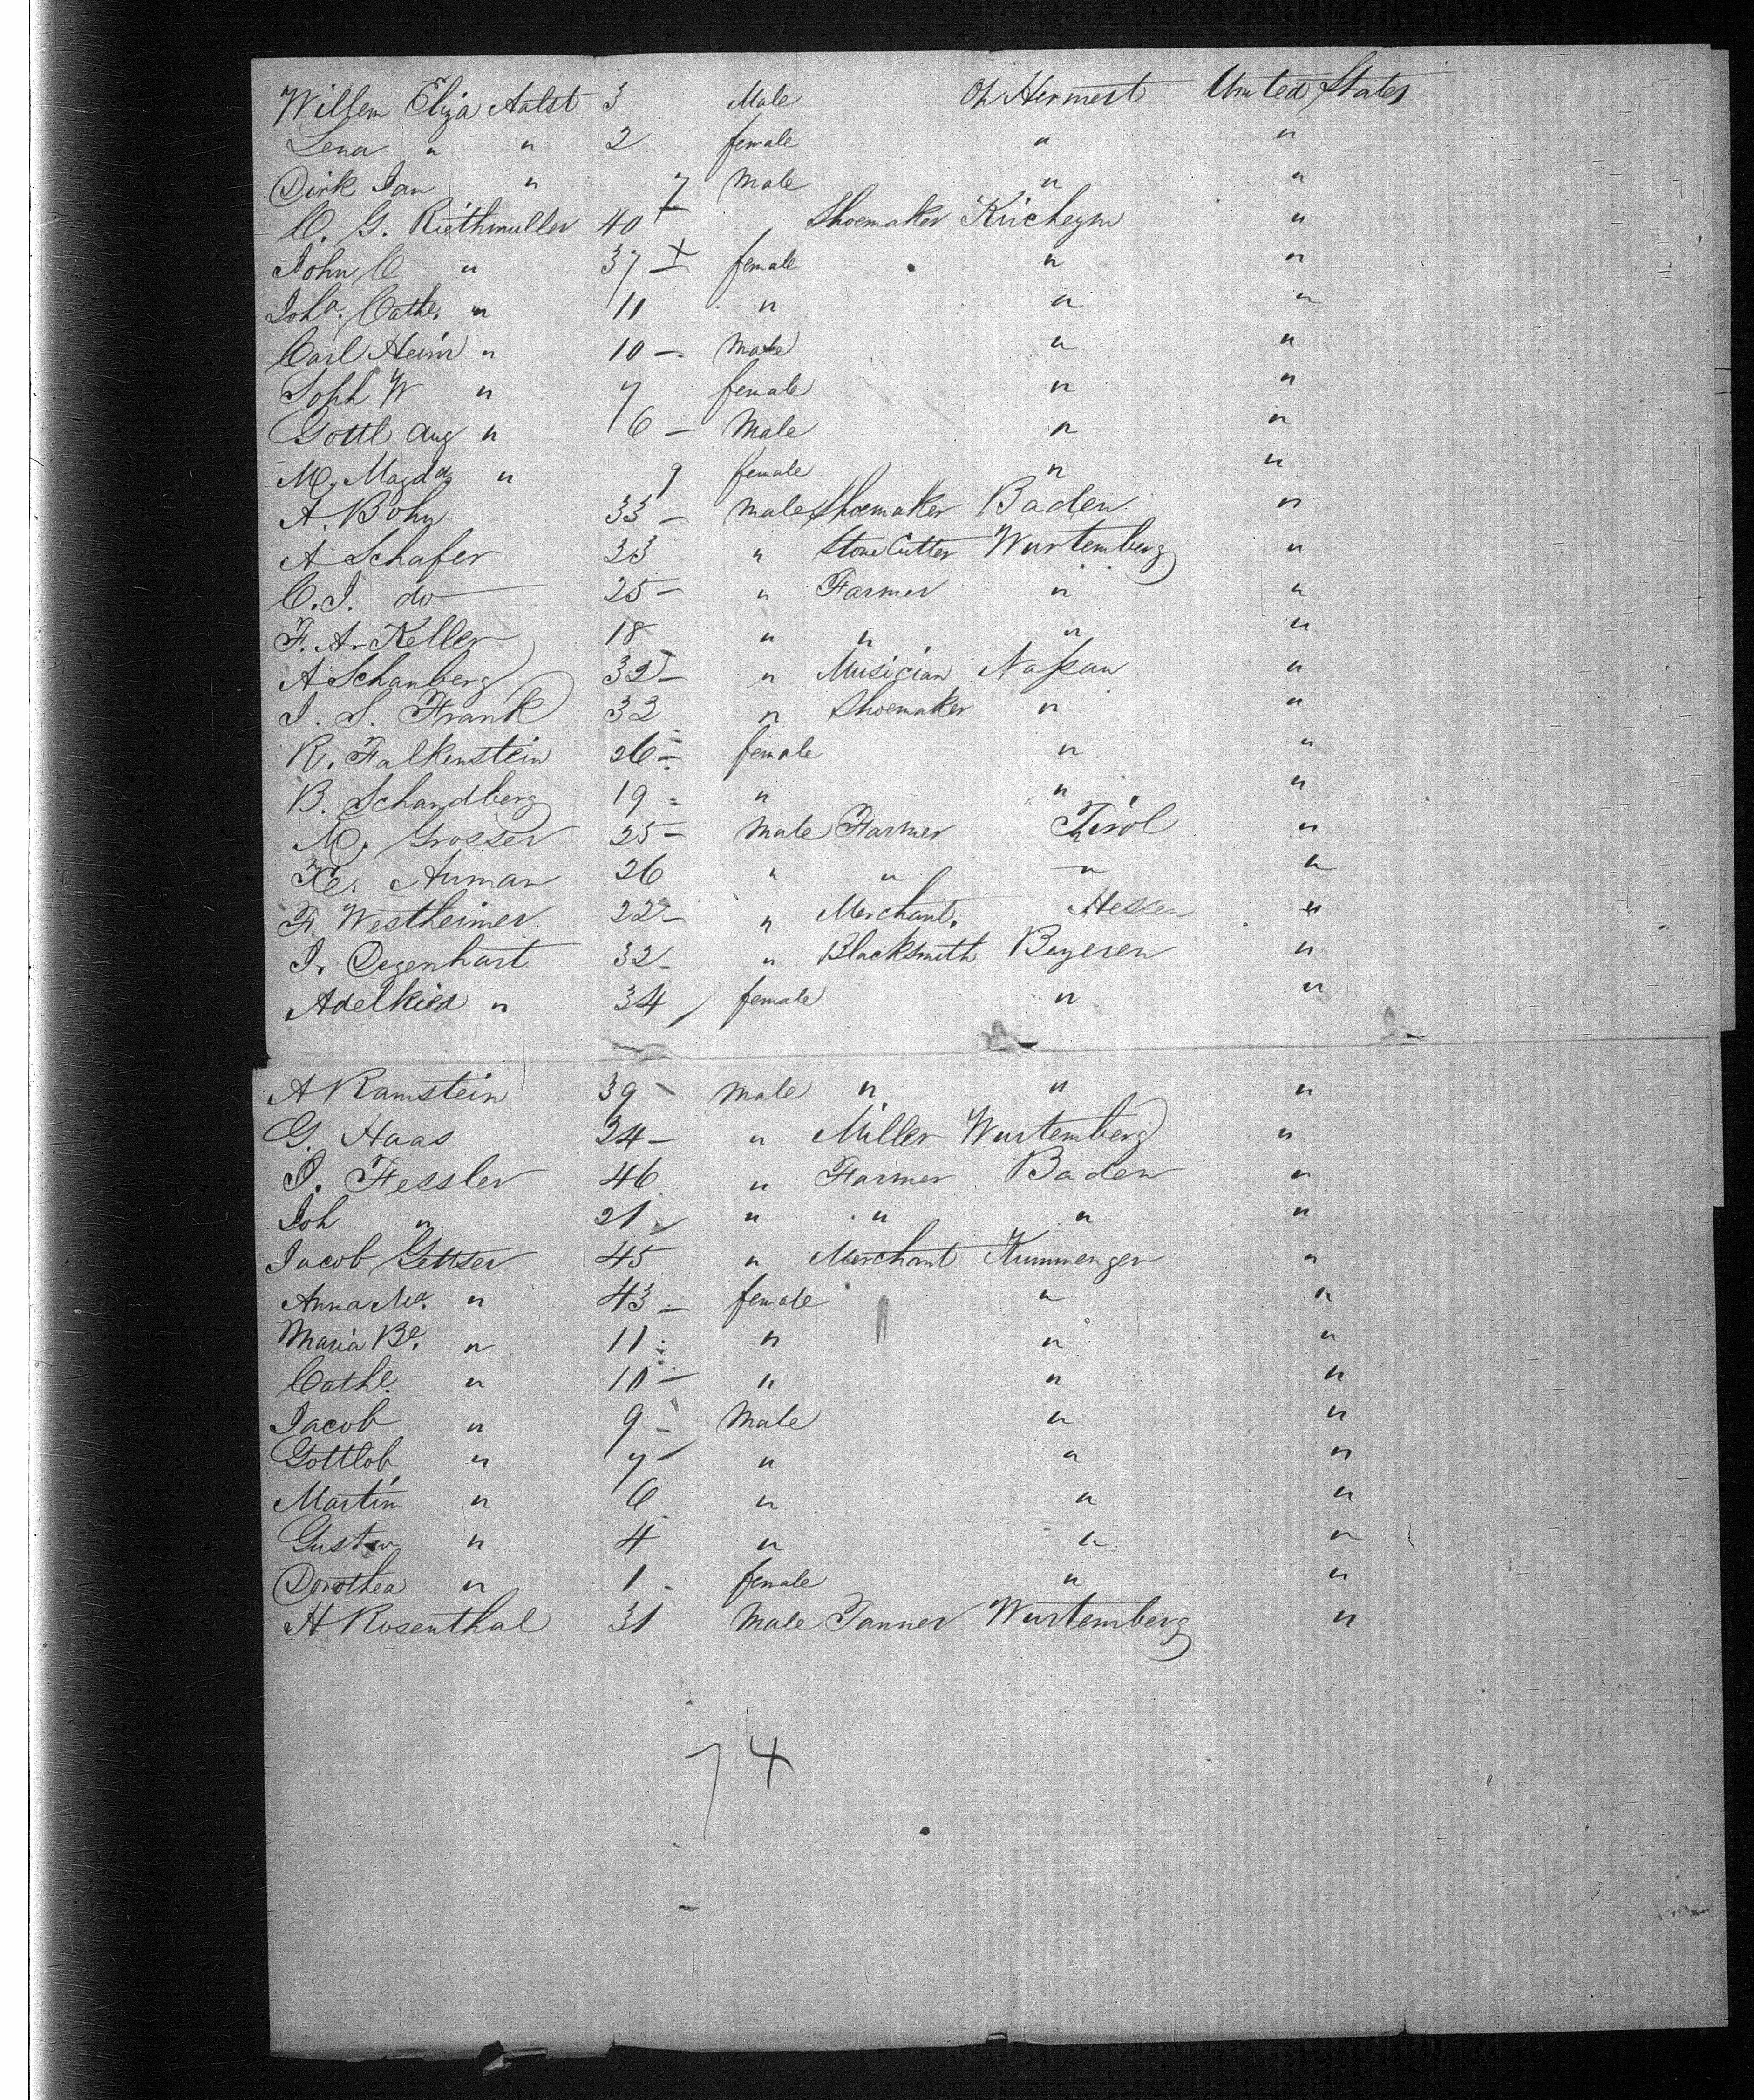 Willem Eliza Aalst 3 Male Oh Hermest United States
Lena " " 2 female " "
Dirk Jan " 7 Male " "
C. G. Riethmuller 40 Shoemaker Kircheym "
John C " 37 female " "
Joha. Cathe. " 11 " " "
Carl Heinr " 10 - Male " "
Soph W " 7 female " "
Gottl Aug " 6 - Male " "
M. Magda " 9 female " "
A. Bohn 33 - Male Shoemaker Baden "
A Schafer 33 " Stone Cutter Wurtemberg "
C. J. do 25 - " Farmer " "
F. A. Keller 18 " " " "
A Schanberg 32 - " Musician Nassau "
J. S. Frank 32 " Shoemaker " "
R. Falkenstein 26 - female " "
B. Schandberg 19 - " " "
M. Grosser 25 - Male Farmer Tirol "
Auman 26 " " " "
F. Westheimer 22 - " Merchant. Hessen "
J. Degenhart 32 - " Blacksmith Beyeren "
Adelheid " 34 female " "
A Ramstein 39 - Male " " "
G. Haas 24 - " Miller Wurtemberg "
P. Fessler 46 " Farmer Baden "
Joh " 21 " " " "
Jacob 45 " Merchant "
Anna Ma. " 43 - female " "
Maria Be. " 11 - " " "
Cathe. " 10 - " " "
Jacob " 9 - Male " "
Gottlob " 7 - " " "
Martin " 6 " " "
Gustav " 4 " " "
Dorothea " 1 - female " "
H Rosenthal 31 Male Tanner Wurtemberg "
74